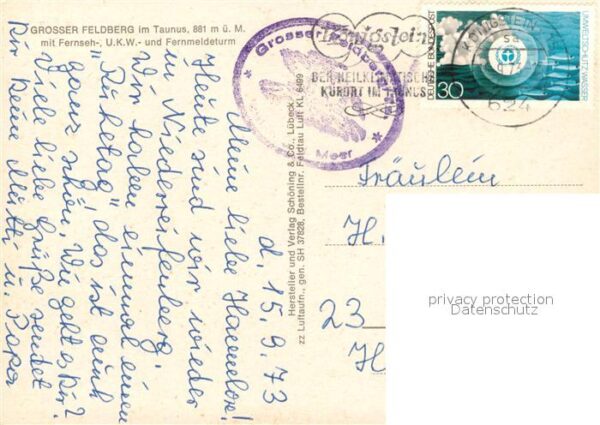 GROSSER FELDBERG im Taunus, 881 m ü. M.
mit Fernseh-, U.K.W.- und Fernmeldeturm
d. 15. 9. 73
Meine liebe Hannelore!
Heute sind wir wieder
in Niederreifenberg.
Wir haben einmal einen
"Ruhetag" das ist auch
ganz schön. Wie geht es Dir?
Viele liebe Grüße sendet
Dir Deine Mutti u. Papa
Hersteller und Verlag Schöning & Co., Lübeck
zz Luftaufn., gen. SH 37828, Bestellnr. Feldtau Luft KL 6499
Grosser Feldbe
Meer
Königstein
DER HEILKLIMATISCHE
KURORT IM TAUNUS
KÖNIGSTEIN
624
DEUTSCHE BUNDESPOST
30
UMWELTSCHUTZ: WASSER
Fräulein
H.
23
H
privacy protection
Datenschutz